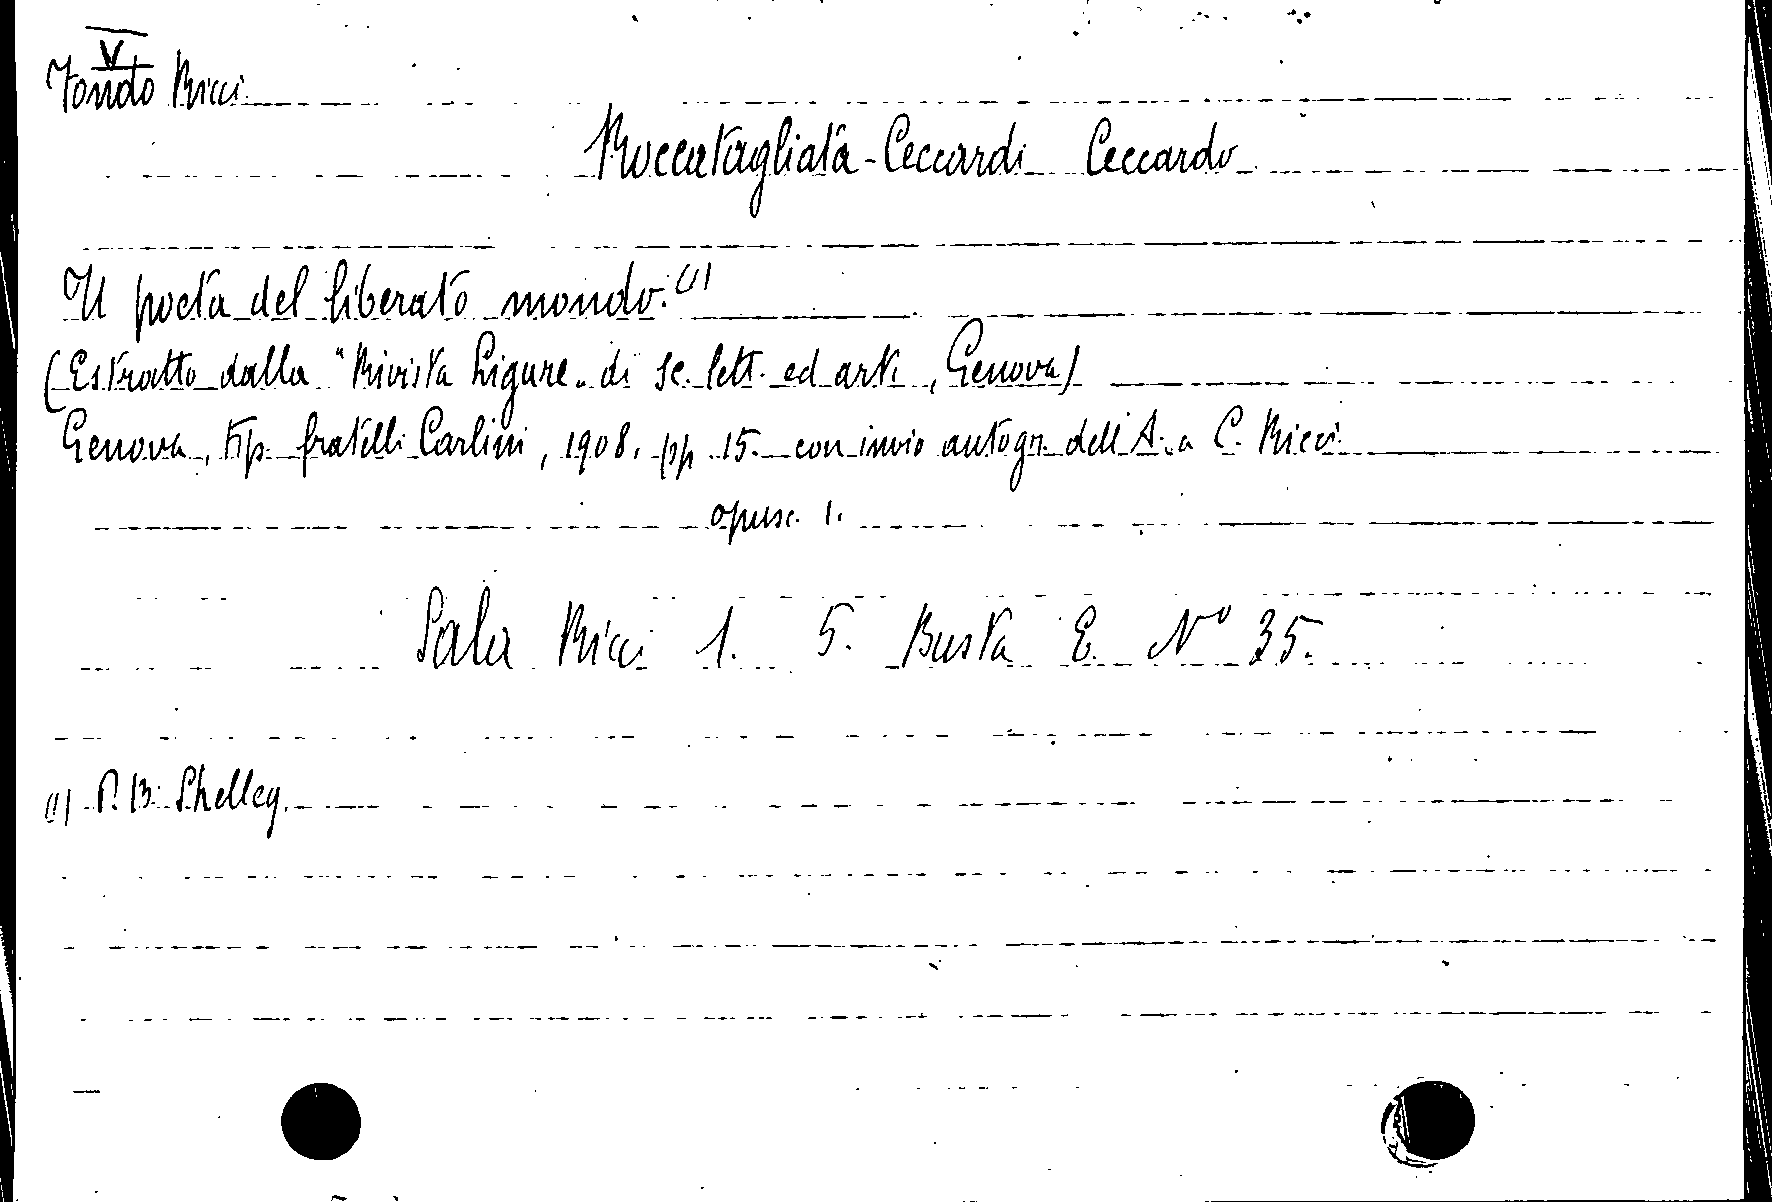 V
Fondo Ricci
Roccatagliata-Ceccardi Ceccardo
Il poeta del liberato mondo. (1)
(Estratto dalla "Rivista Ligure" di sc. lett. ed arti, Genova)
Genova, tip. fratelli Carlini, 1908. pp. 15. con invio autogr. dell'A. a C. Ricci.
opusc. 1.
Sala Ricci 1. 5. Busta E. N° 35.
(1) P. B. Shelley.